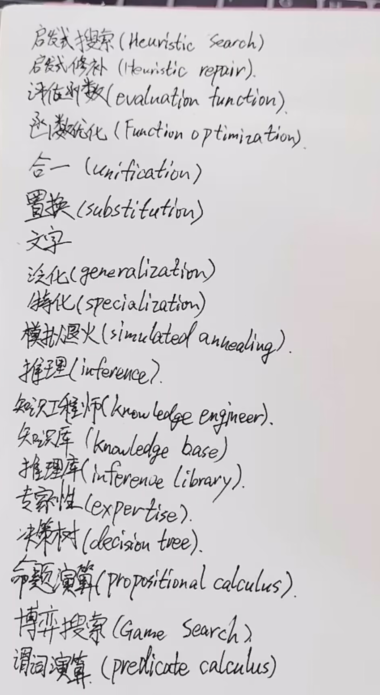 启发式搜索(Heuristic search)
启发式修补(Heuristic repair).
评估函数(evaluation function).
函数优化(Function optimization).
合一(unification)
置换(substitution)
文字
泛化(generalization)
特化(specialization)
模拟退火(simulated annealing).
推理(inference).
知识工程师(knowledge engineer).
知识库(knowledge base)
推理库(inference library).
专家性(expertise).
决策树(decision tree).
命题演算(propositional calculus).
博弈搜索(Game Search)
谓词演算(predicate calculus)